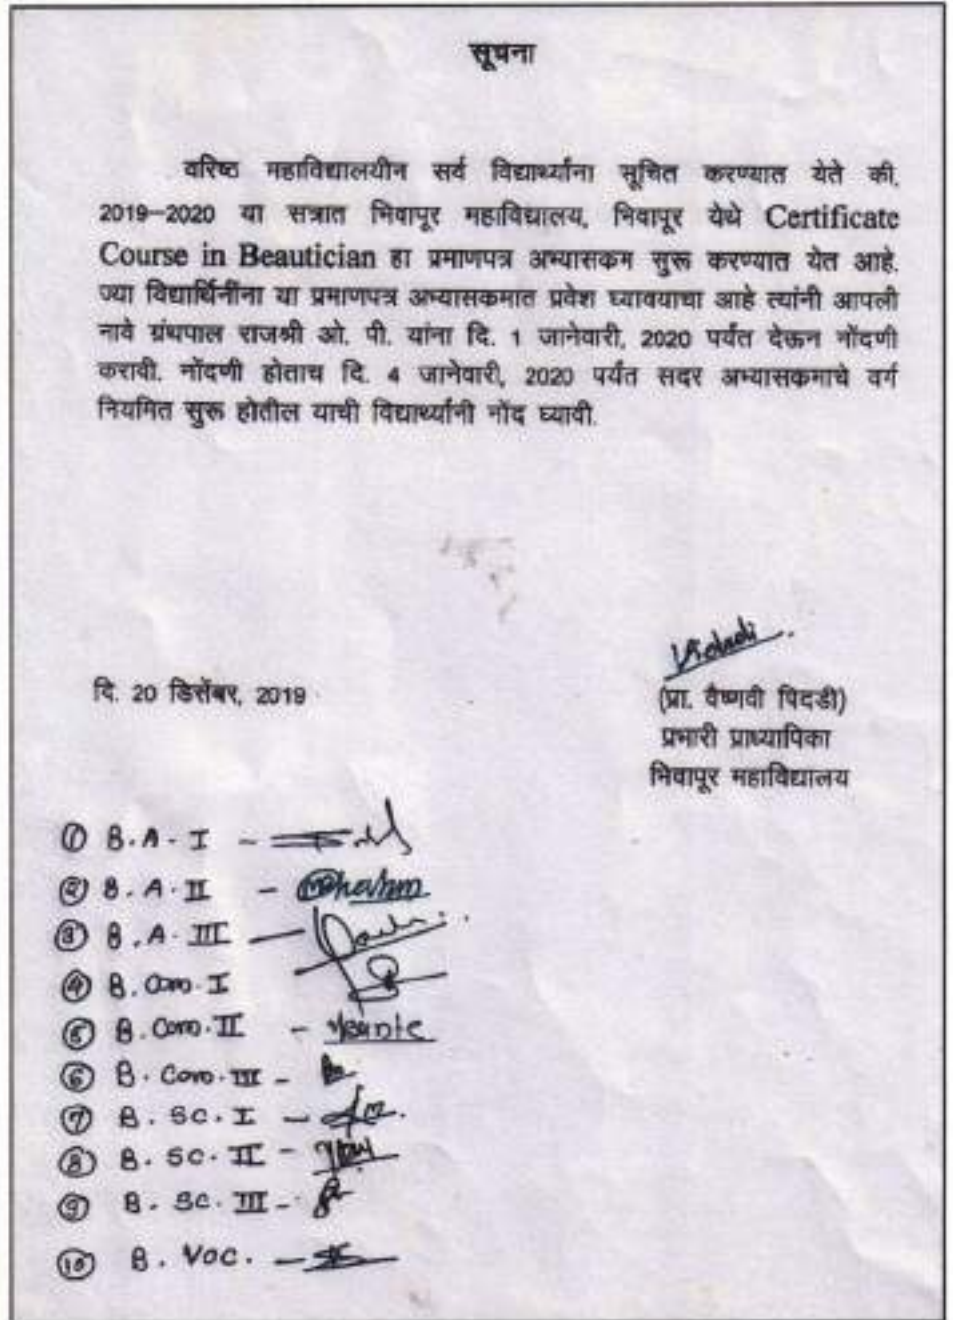 सूचना
वरिष्ठ महाविद्यालयीन सर्व विद्यार्थ्यांना सूचित करण्यात येते की,
2019-2020 या सत्रात भिवापूर महाविद्यालय, भिवापूर येथे Certificate
Course in Beautician हा प्रमाणपत्र अभ्यासकम सुरू करण्यात येत आहे.
ज्या विद्यार्थिनींना या प्रमाणपत्र अभ्यासकमात प्रवेश घ्यावयाचा आहे त्यांनी आपली
नावे ग्रंथपाल राजश्री ओ. पी. यांना दि. 1 जानेवारी, 2020 पर्यंत देऊन नोंदणी
करावी. नोंदणी होताच दि. 4 जानेवारी, 2020 पर्यंत सदर अभ्यासकमाचे वर्ग
नियमित सुरू होतील याची विद्यार्थ्यांनी नोंद घ्यावी.
दि. 20 डिसेंबर, 2019
(प्रा. वैष्णवी पिदडी)
प्रभारी प्राध्यापिका
भिवापूर महाविद्यालय
① B.A.I -
② B.A.II -
③ B.A.III -
④ B.Com.I
⑤ B.Com.II -
⑥ B.Com.III -
⑦ B.SC.I -
⑧ B.SC.II -
⑨ B.SC.III -
⑩ B.VOC. -